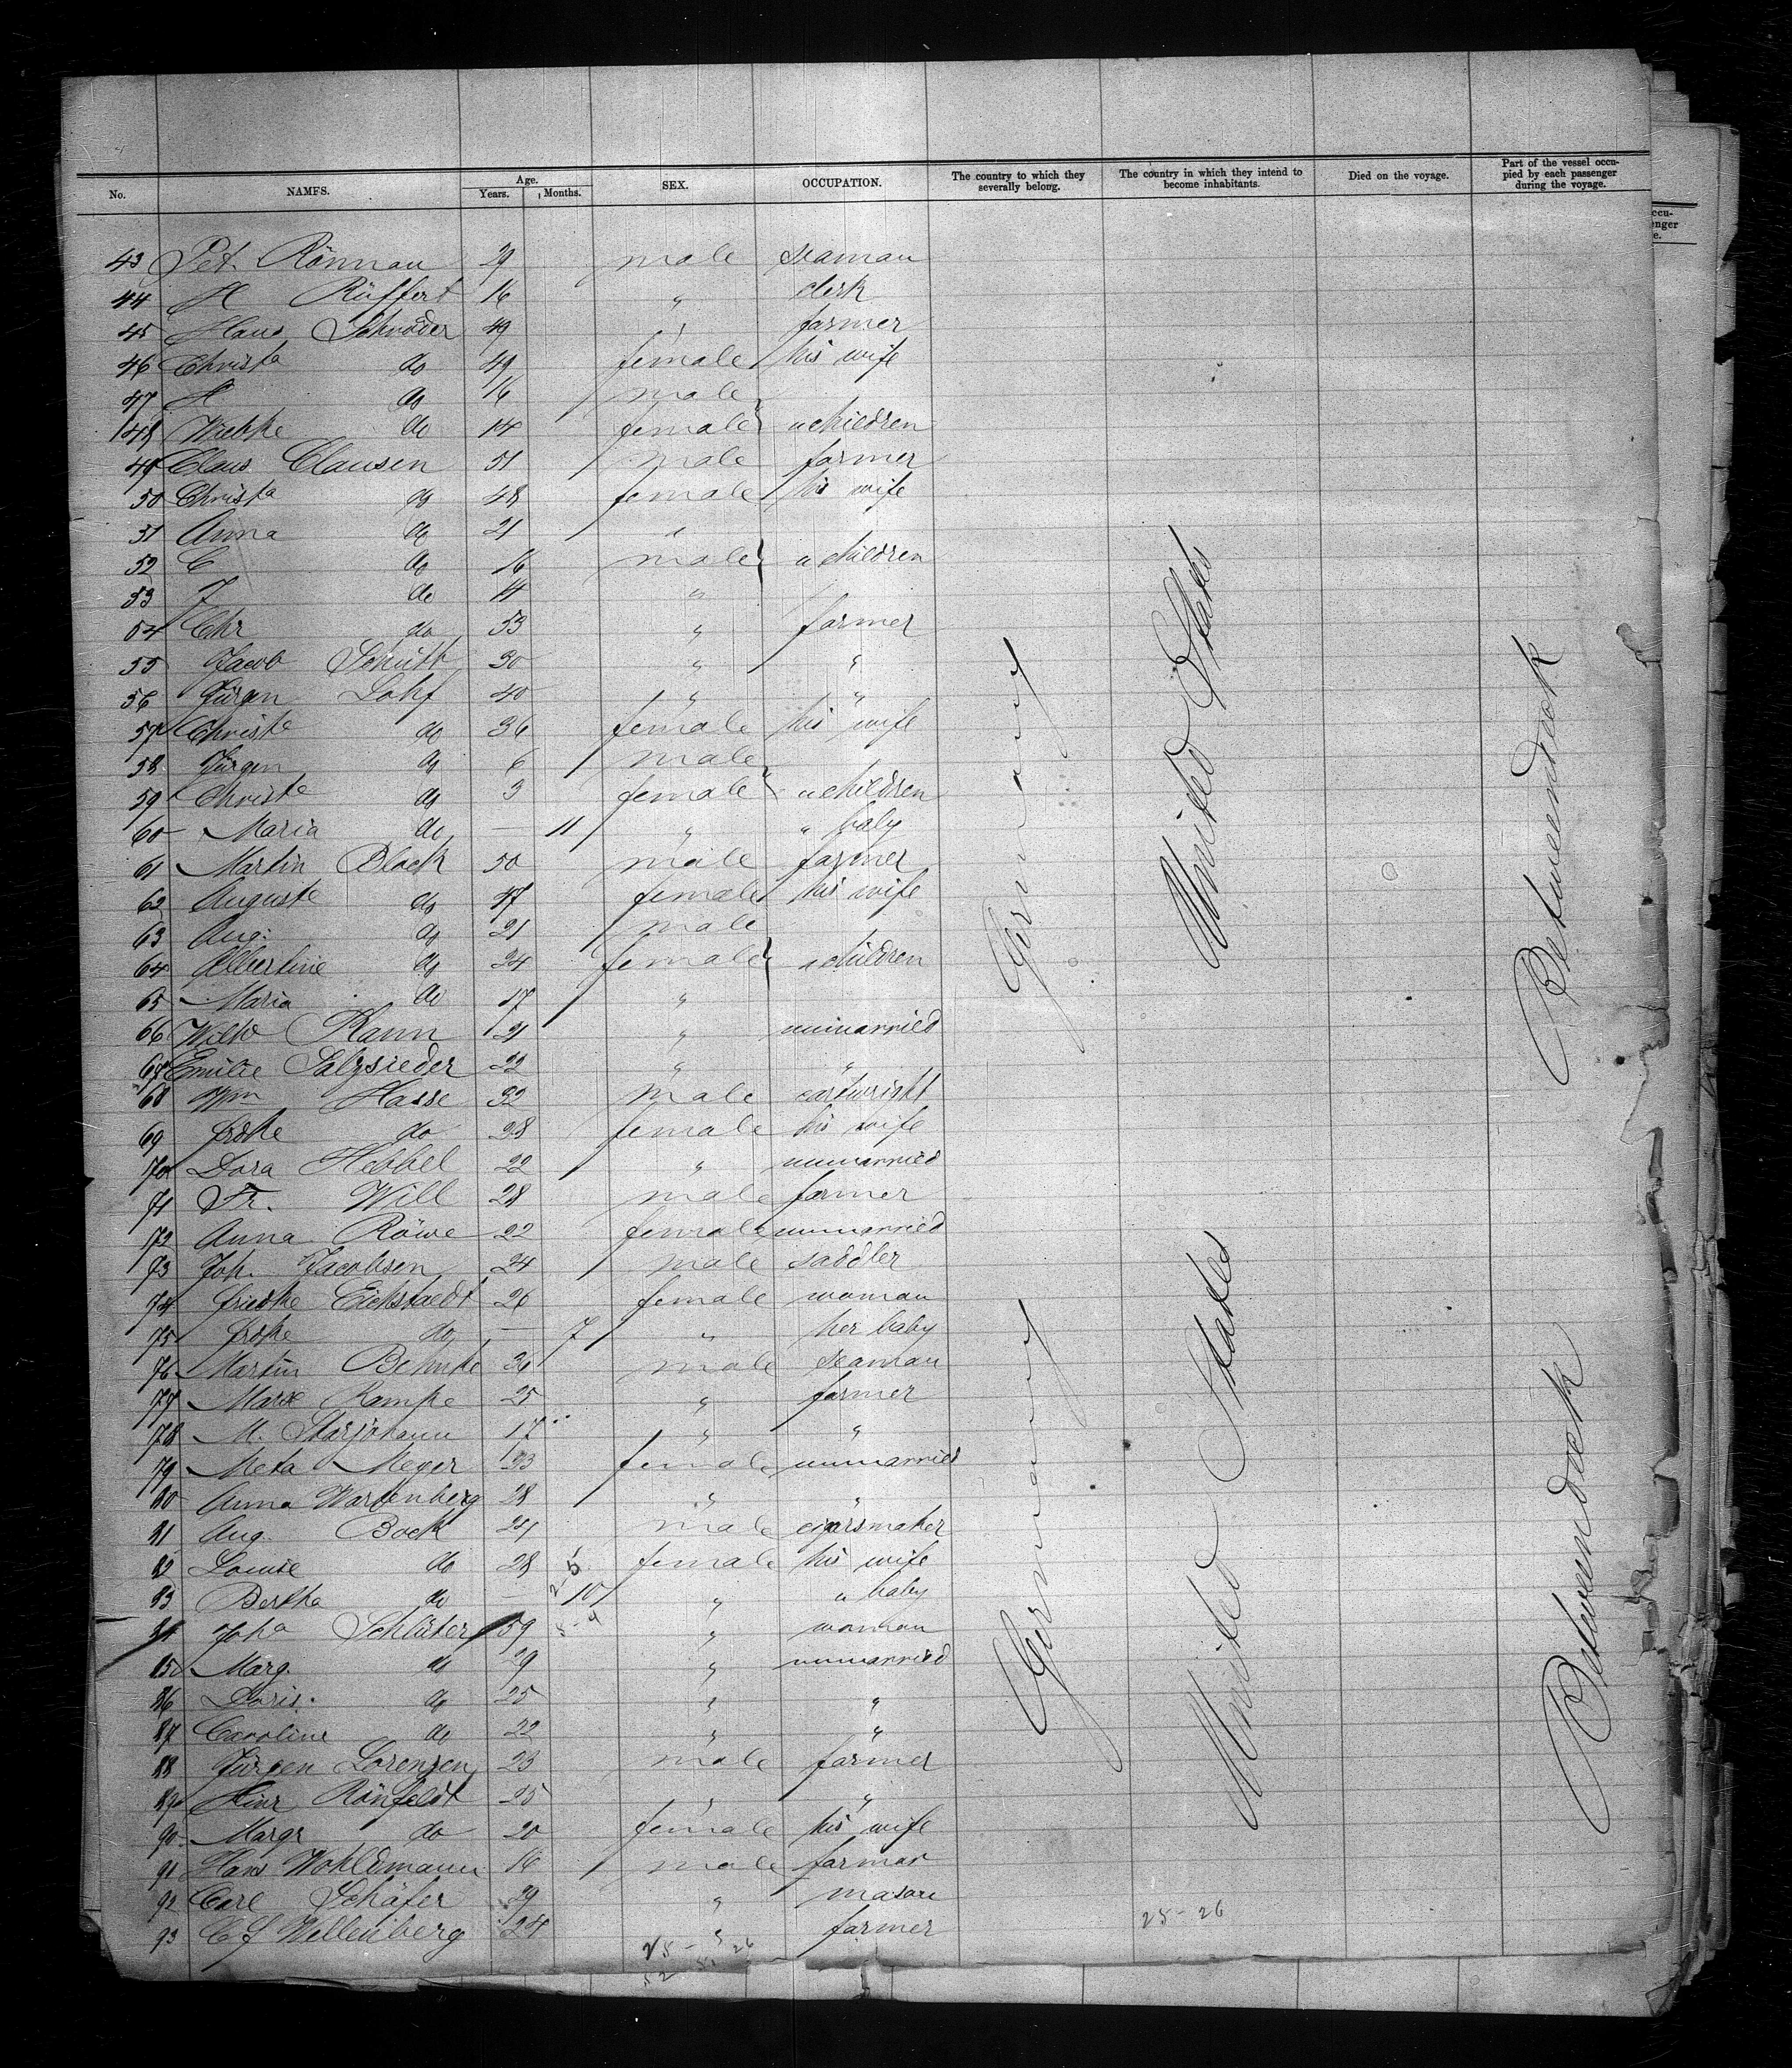 No. NAMES. Age. Years. Months. SEX. OCCUPATION. The country to which they severally belong. The country in which they intend to become inhabitants. Died on the voyage. Part of the vessel occupied by each passenger during the voyage.
43 Pet. Rönnau 29 male seaman
44 H Rüffert 16 " clerk
45 Hans Schröder 49 " farmer
46 Christa do 49 female his wife
47 H do 16 male
48 Wiebke do 14 female " children
49 Claus Clausen 51 male farmer
50 Christa do 48 female his wife
51 Anna do 21 "
52 C do 16 male " children
53 J do 11 "
54 Chr do 53 " farmer
55 Jacob Schütt 30 " "
56 Jürgen Lohf 40 " "
57 Christe do 36 female his wife
58 Jürgen do 6 male
59 Christe do 3 female " children
60 Maria do — 11 " " baby
61 Martin Block 50 male farmer
62 Auguste do 47 female his wife
63 Aug: do 21 male
64 Albertine do 24 female " children
65 Maria do 17 "
66 Wilhe Kann 21 " unmarried
67 Emilie Salzsieder 22 " "
68 Wm Hasse 32 male cartwright
69 Frdke do 28 female his wife
70 Dora Hebbel 22 " unmarried
71 Fr. Will 28 male farmer
72 Anna Röwe 22 female unmarried
73 Joh. Jacobsen 24 male saddler
74 Friedke Eickstaedt 26 female woman
75 Frdke do — 7 " her baby
76 Martin Behnke 36 male seaman
77 Marx Kampe 25 " farmer
78 M. Starjohann 17 " "
79 Meta Meyer 23 female unmarried
80 Anna Wartenberg 28 " "
81 Aug. Bock 24 male cigarsmaker
82 Louise do 28 female his wife
83 Bertha do — 10 " " baby
84 Joha Schlüter 59 " woman
85 Marg. do 29 " unmarried
86 Doris do 25 " "
87 Caroline do 22 " "
88 Jürgen Lorenzen 23 male farmer
89 Hinr Rönfeldt 25 " "
90 Margr do 20 female his wife
91 Hans Wohldmann 16 male farmer
92 Carl Schäfer 29 " mason
93 C f Wellenberg 24 " farmer
Germany
United States
Betweendeck
Germany
United States
Betweendeck
25-26